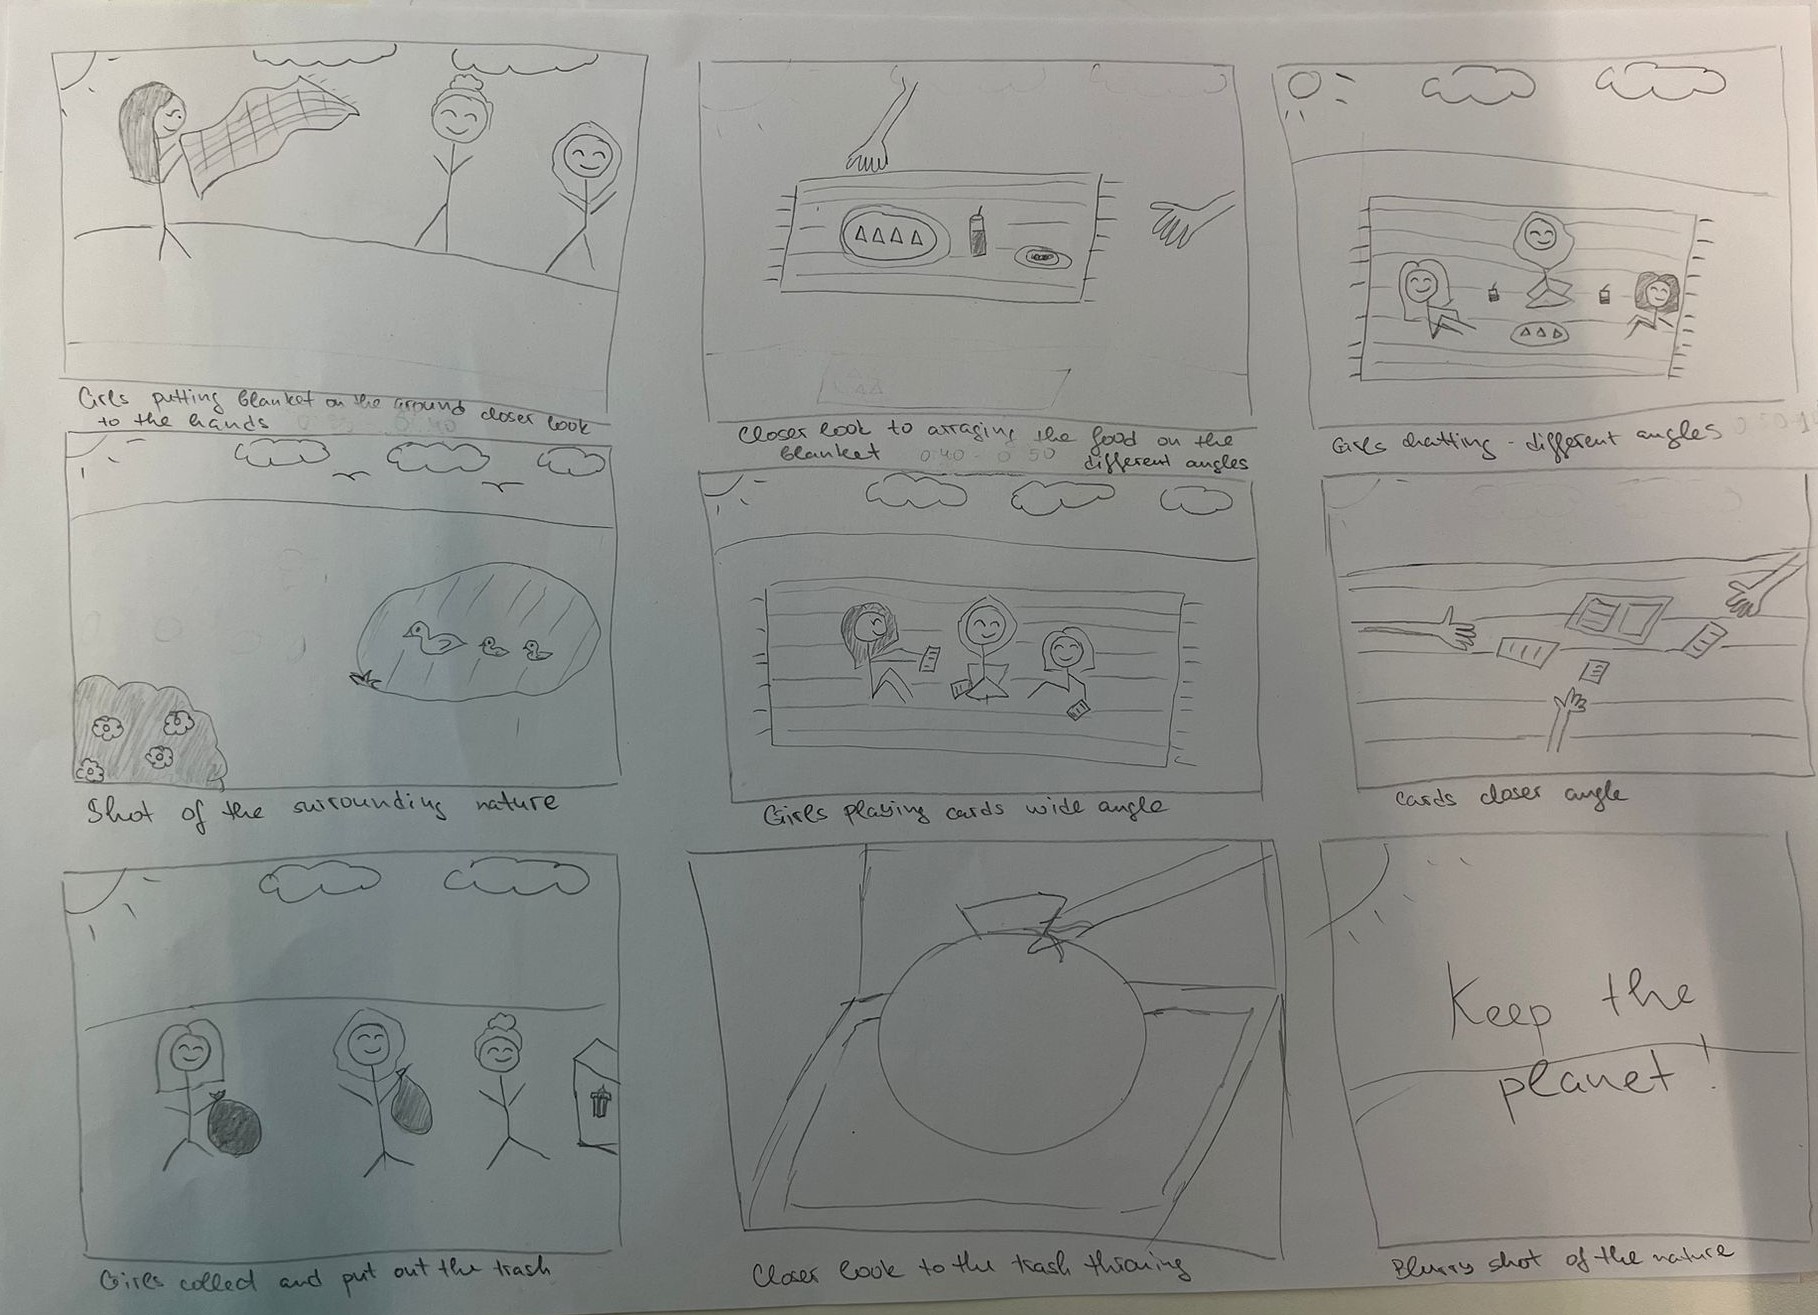 Girls putting blanket on the ground closer look
to the hands
Closer look to arraging the food on the
blanket 0:40 - 0:50 different angles
Girls chatting - different angles
Shot of the surrounding nature
Girls playing cards wide angle
Cards closer angle
Girls collect and put out the trash
Closer look to the trash throwing
Keep the
planet!
Blurry shot of the nature